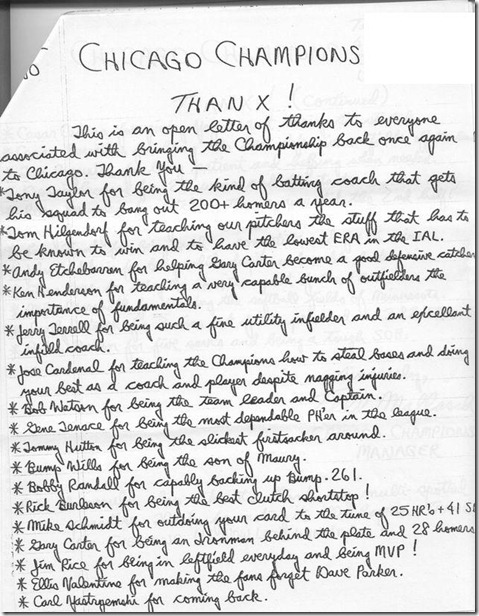 CHICAGO CHAMPIONS
THANX!
This is an open letter of thanks to everyone
associated with bringing the Championship back once again
to Chicago. Thank You —
*Tony Taylor for being the kind of batting coach that gets
his squad to bang out 200+ homers a year.
*Tom Hilgendorf for teaching our pitchers the stuff that has to
be known to win and to have the lowest ERA in the IAL.
*Andy Etchebarren for helping Gary Carter become a good defensive catcher
*Ken Henderson for teaching a very capable bunch of outfielders the
importance of fundamentals.
*Jerry Terrell for being such a fine utility infielder and an excellent
infield coach.
*Jose Cardenal for teaching the Champions how to steal bases and doing
your best as a coach and player despite nagging injuries.
* Bob Watson for being the team leader and Captain.
* Gene Tenace for being the most dependable PHer in the league.
* Tommy Hutton for being the slickest firstsacker around.
* Bump Wills for being the son of Maury.
* Bobby Randall for capably backing up Bump. .261.
* Rick Burleson for being the best clutch shortstop!
* Mike Schmidt for outdoing your card to the tune of 25 HR's + 41 S
* Gary Carter for being an ironman behind the plate and 28 homers
* Jim Rice for being in leftfield everyday and being MVP!
* Ellis Valentine for making the fans forget Dave Parker.
* Carl Yastrzemski for coming back.
MANAGER